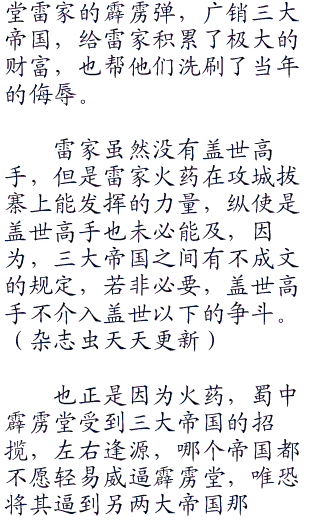 堂雷家的霹雳弹，广销三大
帝国，给雷家积累了极大的
财富，也帮他们洗刷了当年
的侮辱。
雷家虽然没有盖世高
手，但是雷家火药在攻城拔
寨上能发挥的力量，纵使是
盖世高手也未必能及，因
为，三大帝国之间有不成文
的规定，若非必要，盖世高
手不介入盖世以下的争斗。
（杂志虫天天更新）
也正是因为火药，蜀中
霹雳堂受到三大帝国的招
揽，左右逢源，哪个帝国都
不愿轻易威逼霹雳堂，唯恐
将其逼到另两大帝国那